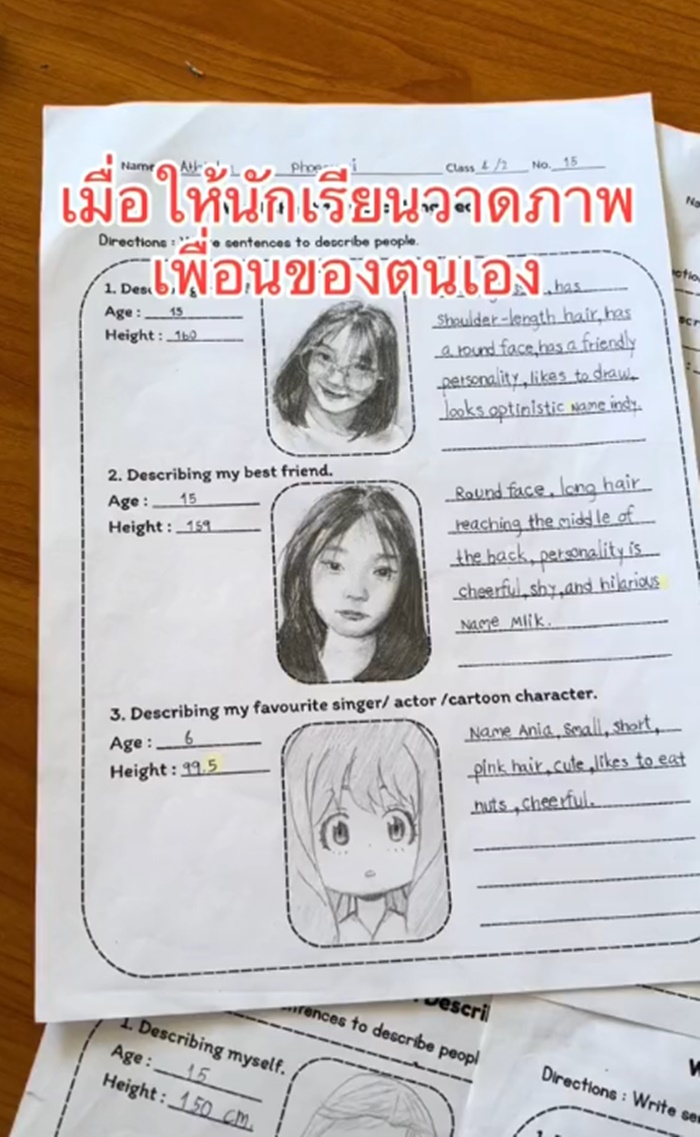 Name
Class
No. 15
เมื่อให้นักเรียนวาดภาพ
เพื่อนของตนเอง
Directions : sentences to describe people.
1.
Age : 15
Height : 160
has
shoulder-length hair, has
a round face, has a friendly
personality, likes to draw,
looks optinistic Name indy.
2. Describing my best friend.
Age : 15
Height : 159
Round face, long hair
reaching the middle of
the back, personality is
cheerful, shy, and hilarious
Name Mlik.
3. Describing my favourite singer/ actor /cartoon character.
Age : 6
Height : 99.5
Name Ania, small, short,
pink hair, cute, likes to eat
nuts, cheerful.
1. Describing myself.
Age : 15
Height : 150 cm.
sentences to describe
Directions : Write